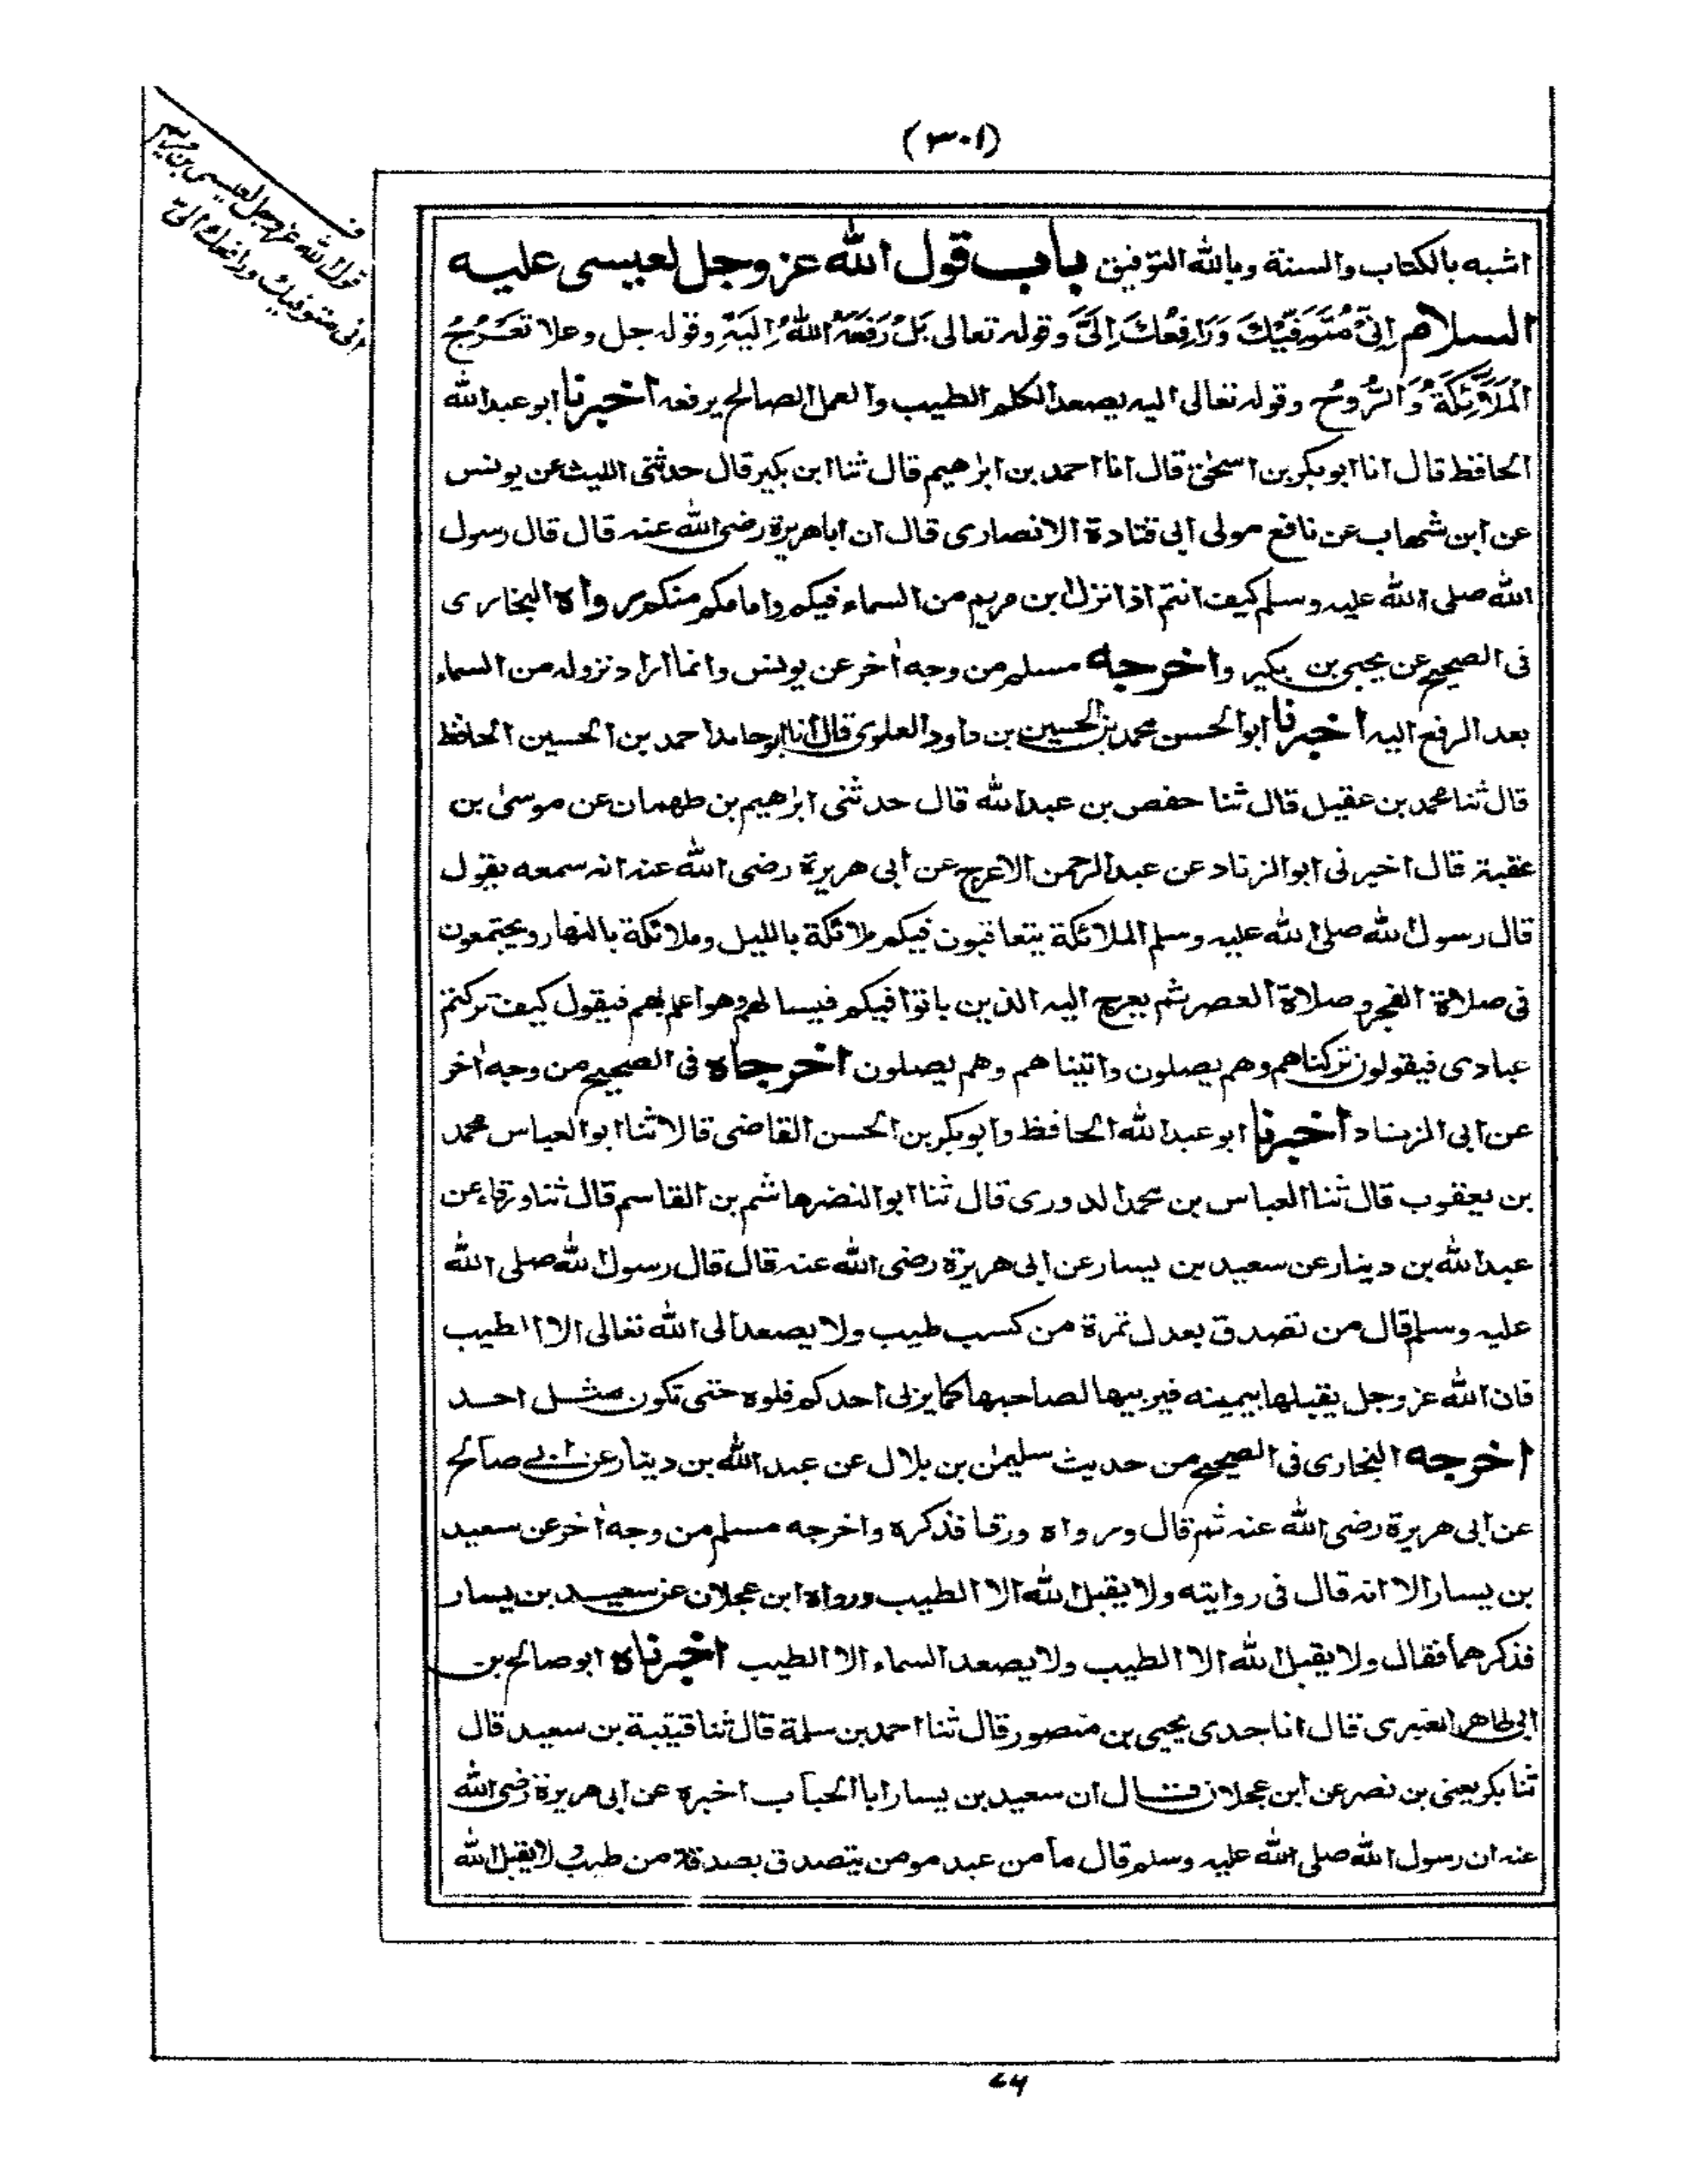 (٣٠١)
قول الله عزوجل لعيسى بن مريم
انى متوفيك ورافعك الىّ
اشبه بالكتاب والسنة وبالله التوفيق باب قول الله عز وجل لعيسى عليه
السلام اِنِّىْ مُتَوَفِّيْكَ وَرَافِعُكَ اِلَىَّ وقوله تعالى بَلْ رَفَعَهُ اللهُ اِلَيْهِ وقوله جل وعلا تَعْرُجُ
الْمَلَآئِكَةُ وَالرُّوحُ وقوله تعالى اليه يصعد الكلم الطيب والعمل الصالح يرفعه اخبرنا ابو عبد الله
الحافظ قال انا ابو بكر بن اسحٰق قال انا احمد بن ابرٰهيم قال ثنا ابن بكير قال حدثنى الليث عن يونس
عن ابن شهاب عن نافع مولى ابى قتادة الانصارى قال ان ابا هريرة رضى الله عنه قال قال رسول
الله صلى الله عليه وسلم كيف انتم اذا نزل ابن مريم من السماء فيكم وامامكم منكم رواه البخارى
فى الصحيح عن يحيى بن بكير واخرجه مسلم من وجه اٰخر عن يونس وانما اراد نزوله من السماء
بعد الرفع اليه اخبرنا ابو الحسن محمد بن الحسين بن داود العلوى قال انا ابو حامد احمد بن الحسين الحافظ
قال ثنا محمد بن عقيل قال ثنا حفص بن عبد الله قال حدثنى ابرٰهيم بن طهمان عن موسىٰ بن
عقبة قال اخبرنى ابو الزناد عن عبد الرحمن الاعرج عن ابى هريرة رضى الله عنه انه سمعه يقول
قال رسول الله صلى الله عليه وسلم الملائكة يتعاقبون فيكم ملائكة بالليل وملائكة بالنهار ويجتمعون
فى صلاة الفجر وصلاة العصر ثم يعرج اليه الذين باتوا فيكم فيسالهم وهو اعلم بهم فيقول كيف تركتم
عبادى فيقولون تركناهم وهم يصلون واتيناهم وهم يصلون اخرجاه فى الصحيح من وجه اٰخر
عن ابى الزناد اخبرنا ابو عبد الله الحافظ وابو بكر بن الحسن القاضى قالا ثنا ابو العباس محمد
بن يعقوب قال ثنا العباس بن محمد الدورى قال ثنا ابو النضر هاشم بن القاسم قال ثنا ورقاء عن
عبد الله بن دينار عن سعيد بن يسار عن ابى هريرة رضى الله عنه قال قال رسول الله صلى الله
عليه وسلم قال من تصدق بعدل تمرة من كسب طيب ولا يصعد الى الله تعالى الا الطيب
فان الله عز وجل يقبلها بيمينه فيربيها لصاحبها كما يربى احدكم فلوه حتى تكون مثل احد
اخرجه البخارى فى الصحيح من حديث سليمٰن بن بلال عن عبد الله بن دينار عن ابى صالح
عن ابى هريرة رضى الله عنه ثم قال ورواه ورقا فذكره واخرجه مسلم من وجه اٰخر عن سعيد
بن يسار الا انه قال فى روايته ولا يقبل الله الا الطيب ورواه ابن عجلان عن سعيد بن يسار
فذكرهما فقال ولا يقبل الله الا الطيب ولا يصعد السماء الا الطيب اخبرناه ابو صالح بن
ابى طاهر العنبرى قال انا جدى يحيى بن منصور قال ثنا احمد بن سلمة قال ثنا قتيبة بن سعيد قال
ثنا بكر يعنى بن نصر عن ابن عجلان قال ان سعيد بن يسار ابا الحباب اخبره عن ابى هريرة رضى الله
عنه ان رسول الله صلى الله عليه وسلم قال ما من عبد مومن يتصدق بصدقة من طيب ولا يقبل الله
٧٦